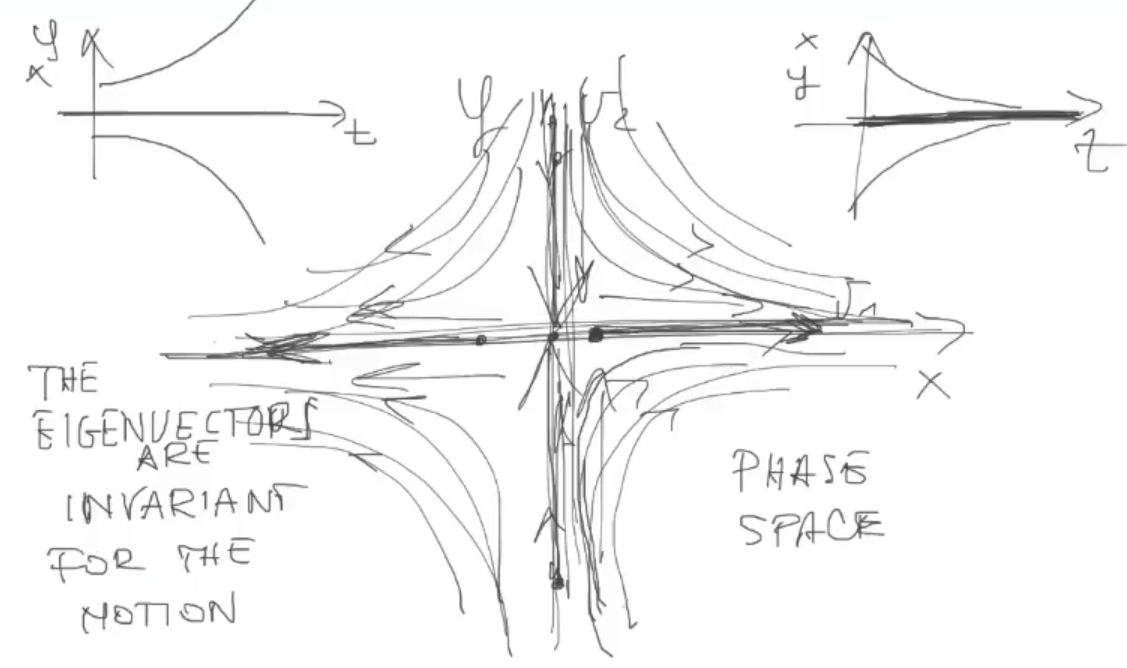 y
x
t
x
y
t
y
x
THE
EIGENVECTORS
ARE
INVARIANT
FOR THE
MOTION
PHASE
SPACE